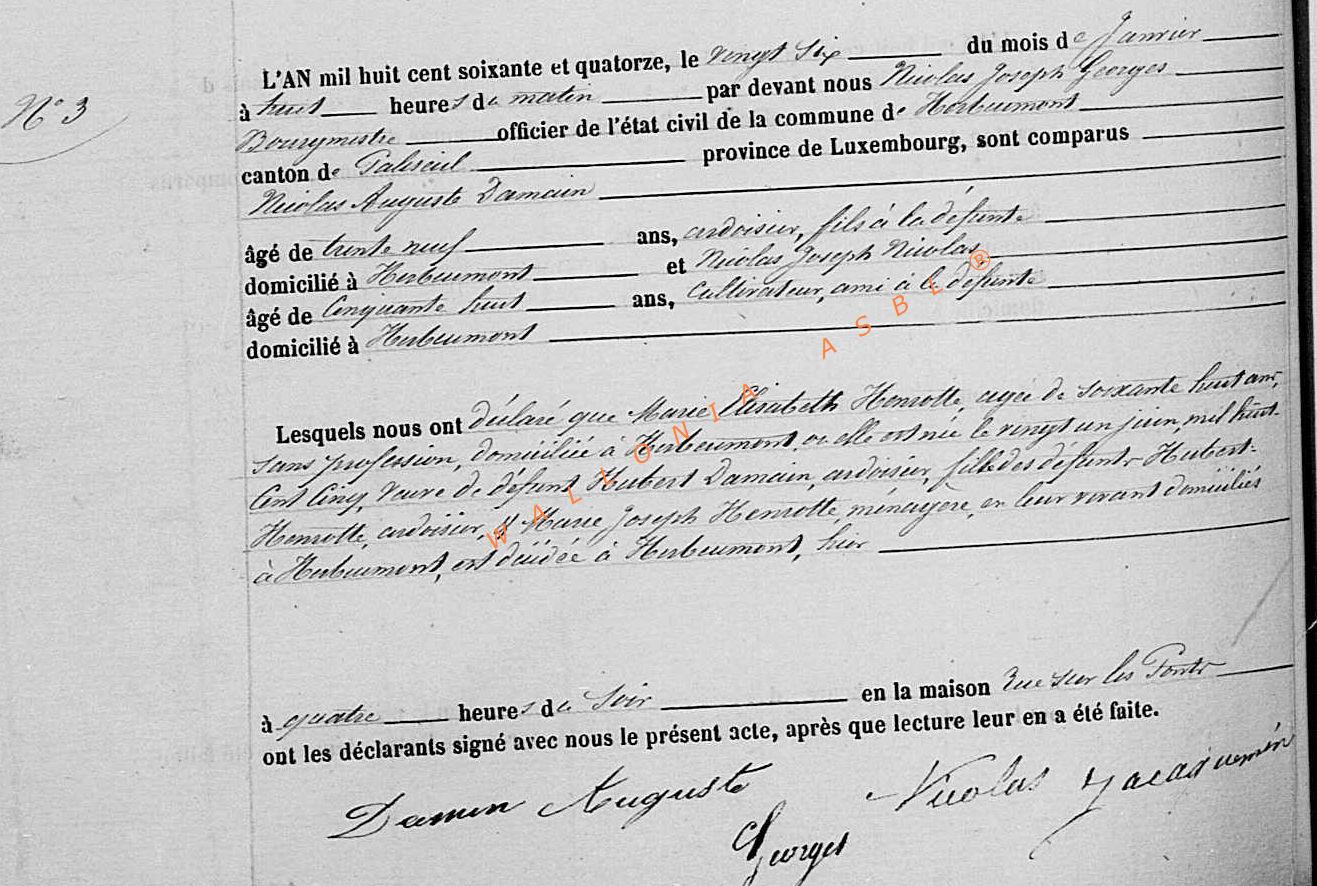 N° 3
L'AN mil huit cent soixante et quatorze, le vingt six du mois de Janvier
à huit heures du matin par devant nous Nicolas Joseph Georges
Bourgmestre officier de l'état civil de la commune de Herbeumont
canton de Paliseul province de Luxembourg, sont comparus
Nicolas Auguste Damain
âgé de trente neuf ans, ardoisier, fils à la défunte
domicilié à Herbeumont et Nicolas Joseph Nicolas,
âgé de Cinquante huit ans, Cultivateur, ami à la défunte
domicilié à Herbeumont
Lesquels nous ont déclaré que Marie Elisabeth Henrotte, agée de soixante huit ans,
sans profession, domiciliée à Herbeumont, où elle est née le vingt un juin, mil huit-
Cent Cinq, Veuve de défunt Hubert Damain, ardoisier, fille des défunts Hubert-
Henrotte, ardoisier, et Marie Joseph Henrotte, ménagère, en leur vivant domiciliés
à Herbeumont, est décédée à Herbeumont, hier
à quatre heures du Soir en la maison Rue sur les Ponts
ont les déclarants signé avec nous le présent acte, après que lecture leur en a été faite.
Damen Auguste
Nicolas Jacquemin
Georges
WALLONIA ASBL ®